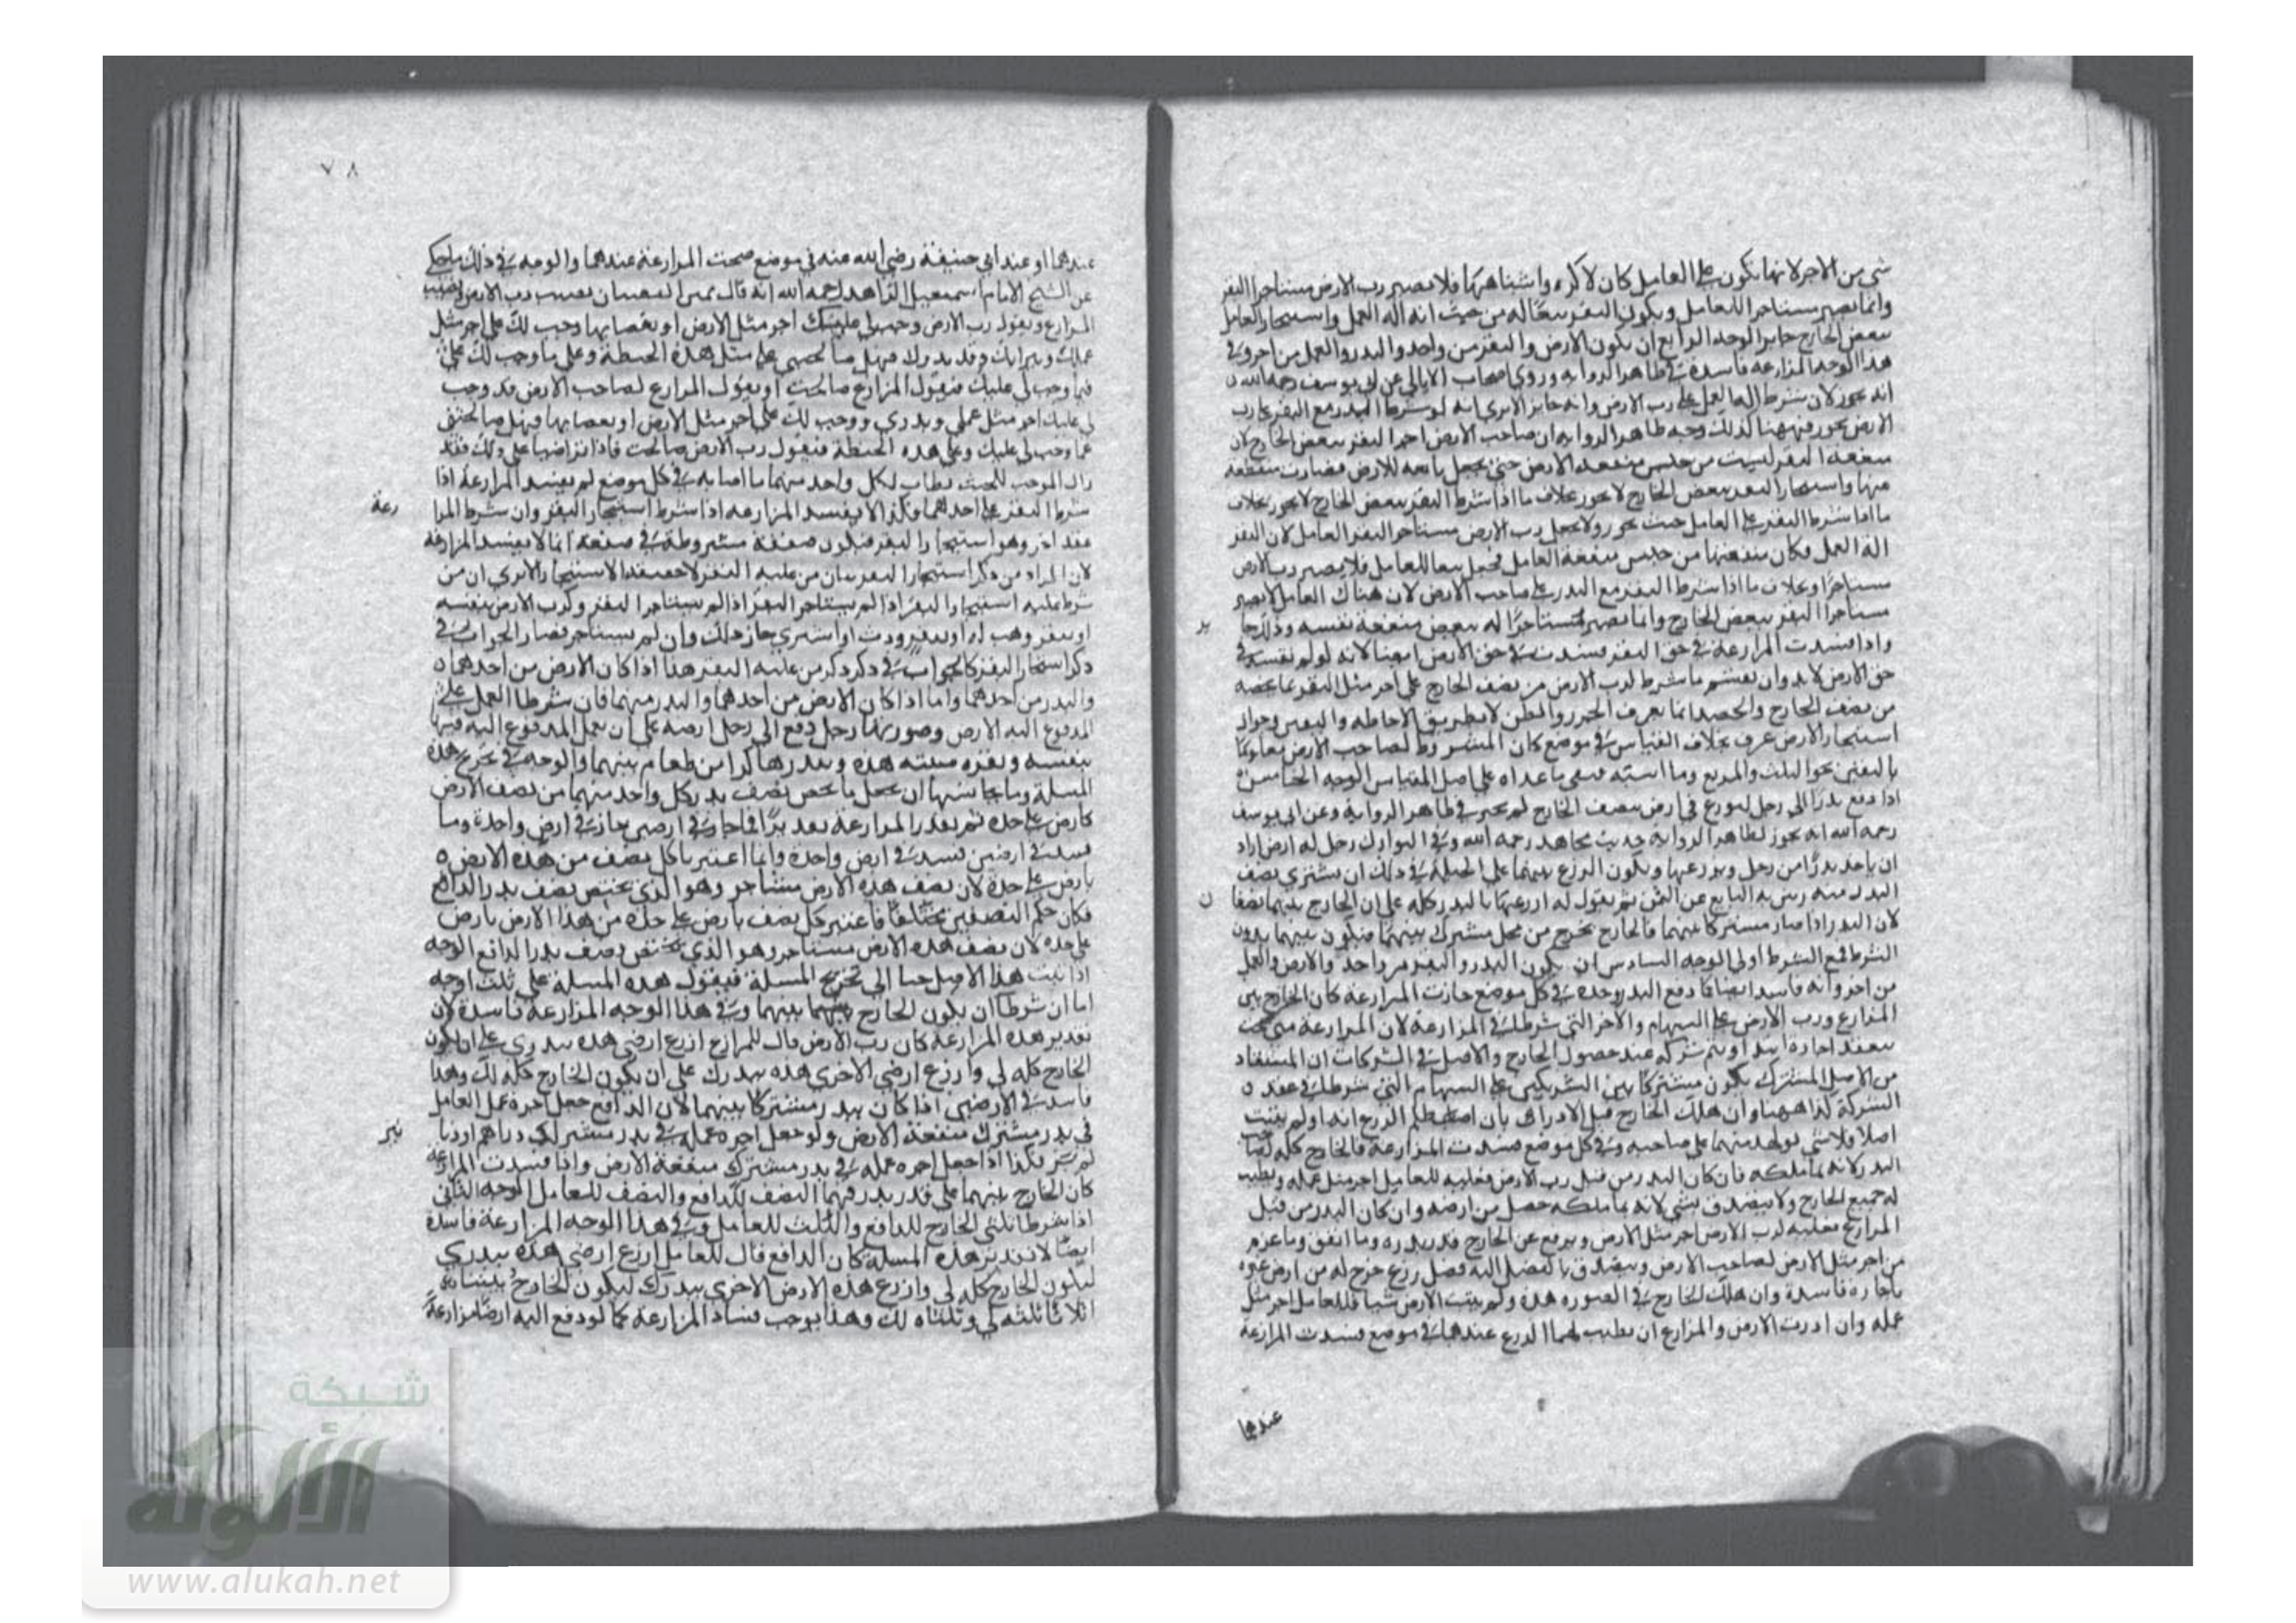 شي من الاجر لانها تكون على العامل كان لا كراء واشباههما فلا يصير رب الارض مستاجرا البقر
وانما يصير مستاجرا للعامل ويكون البقر تبعا له من حيث انه آلة العمل واستيجار العامل
ببعض الخارج جايز الوجه الرابع ان يكون الارض والبقر من واحد والبدر والعمل من اخر وفي
هذا الوجه المزارعة فاسدة في ظاهر الرواية وروى اصحاب الامالي عن ابي يوسف رحمه الله
انه يجوز لان شرط العمل على رب الارض وانه جايز الا يرى انه لو شرط البدر مع البقر على رب
الارض يجوز فههنا كذلك وجه ظاهر الرواية ان صاحب الارض اجر البقر ببعض الخارج لان
منفعة البقر ليست من جنس منفعة الارض حتى يجعل تابعة للارض فصارت
واستيجار البقر ببعض الخارج لا يجوز بخلاف
ما اذا شرط البقر على العامل حيث يجوز ولا يجعل رب الارض مستاجر البقر العامل لان البقر
الة العمل فكان منفعتها من جنس منفعة العامل فجعل تبعا للعامل فلا يصير رب الارض
مستاجرا وبخلاف ما اذا شرط البقر مع البدر على صاحب الارض لان هناك العامل لا يصير
مستاجرا البقر ببعض الخارج وانما يصير مستاجرا له ببعض منفعة نفسه وذلك جا
يز
واذا فسدت المزارعة في حق البقر فسدت في حق الارض ايضا لانه لو لم تفسد في
حق الارض لابد وان يقسم ما شرط لرب الارض من نصف الخارج على اجر مثل البقر بما يخصه
من نصف الخارج والحصة انما يعرف بالحزر والظن لا بطريق الاحاطة واليقين وجواز
استيجار الارض عرف بخلاف القياس في موضع كان المشروط لصاحب الارض معلوما
باليقين نحو الثلث والربع وما اشبه فبقي ما عداه على اصل القياس الوجه الخامس
اذا دفع بدرا الى رجل ليزرع في ارضه بنصف الخارج لم يجز في ظاهر الرواية وعن ابي يوسف
رحمه الله انه يجوز لظاهر الرواية حديث مجاهد رحمه الله وفي النوادر رجل له ارض اراد
ان ياخذ بدرا من رجل ويزرعها ويكون الزرع بينهما على الحيلة في ذلك ان يشتري نصف
البدر منه ويبريه البايع عن الثمن ثم يقول له ازرعها بالبدر كله على ان الخارج بيننا نصفا
ن
لان البدر اذا صار مشتركا بينهما فالخارج يخرج من محل مشترك بينهما فيكون بينهما بدون
الشرط فمع الشرط اولى الوجه السادس ان يكون البدر والبقر من واحد والارض والعمل
من اخر وانه فاسد ايضا كما دفع البدر وحده في كل موضع جازت المزارعة كان الخارج بين
المزارع ورب الارض على السهام والاجر التي شرطا في المزارعة لان المزارعة متى صحت
ينعقد اجارة ابتداء ويتم شركة عند حصول الخارج والاصل في الشركات ان المستفاد
من الاصل المشترك يكون مشتركا بين الشريكين على السهام التي شرطا في عقد
الشركة كذا ههنا وان هلك الخارج قبل الادراك بان اصطلم الزرع انه او لم ينبت
اصلا فلا شي لواحد منهما على صاحبه وفي كل موضع فسدت المزارعة فالخارج كله لصا
البدر لانه نما ملكه فان كان البدر من قبل رب الارض فعليه للعامل اجر مثل عمله ويطيب
له جميع الخارج ولا يتصدق بشي لانه نما ملكه حصل من ارضه وان كان البدر من قبل
المزارع فعليه لرب الارض اجر مثل الارض ويرفع عن الخارج قدر بدره وما انفق وما غرم
من اجر مثل الارض لصاحب الارض ويتصدق بالفضل لانه فضل زرع خرج له من ارض غيره
باجارة فاسدة وان هلك الخارج في الصورة هذه ولم ينبت الارض شيا فللعامل اجر مثل
عمله وان اردت الارض والمزارع ان يطيب لهما الزرع عندهما في موضع فسدت المزارعة
عندهما
٧٨
عندهما او عند ابي حنيفة رضي الله عنه في موضع صحت المزارعة عندهما والوجه في ذلك ما حكي
عن الشيخ الامام اسمعيل الزاهد رحمه الله انه قال نصيب رب الارض ونصيب
المزارع ويقول رب الارض وجب لي عليك اجر مثل الارض او نقصانها وجب لك علي اجر مثل
عملك وثيرانك وقدر بدرك فهل صالحتني على مثل هذه الحنطة وعلى ما وجب لك علي
فيما وجب لي عليك فيقول المزارع صالحت او يقول المزارع لصاحب الارض قد وجب
لي عليك اجر مثل عملي وبدري ووجب لك علي اجر مثل الارض او نقصانها فهل صالحتني
عما وجب لي عليك وعلى هذه الحنطة فيقول رب الارض صالحت فاذا تراضيا على ذلك فقد
زال الموجب للخبث يطاب لكل واحد منهما ما اصابه في كل موضع لم يفسد المزارعة اذا
شرط البقر على احدهما فكذا لا يفسد المزارعة اذا شرط استيجار البقر وان شرط المزا
رعة
عقد اخر وهو استيجار البقر فيكون صفقة مشروطة في صفقة انما لا يفسد المزارعة
لان المراد من ذكر استيجار البقر بيان من عليه البقر لا حقيقة الاستيجار الا يرى ان من
شرط عليه استيجار البقر اذا لم يستاجر البقر وكرب الارض بنفسه
او ببقر وهب له او ببقر ورث او اشترى جاز ذلك وان لم يستاجر فصار الجواب في
ذكر استيجار البقر كالجواب في ذكر من عليه البقر هذا اذا كان الارض من احدهما
والبدر من احدهما واما اذا كان الارض من احدهما والبدر منهما فان شرطا العمل على
المدفوع اليه الارض وصورتها رجل دفع الى رجل ارضه على ان يعمل المدفوع اليه فيها
بنفسه وبقره سنته هذه وبدرها كرا من طعام بينهما والوجه في تخريج هذه
المسلة وما يجانسها ان يجعل ما يخص نصف بدر كل واحد منهما من نصف الارض
كارض على حدة ثم يقدر المزارعة بعد فما جاز في ارضين جاز في ارض واحدة وما
فسد في ارضين فسد في ارض واحدة وانما اعتبر كل نصف من هذه الارض
بارض على حدة لان نصف هذه الارض مستاجر وهو الذي يختص نصف بدر الدافع
فكان حكم النصفين مختلفا فاعتبر كل نصف بارض على حدة من هذا الارض بارض
على حدة لان نصف هذه الارض مستاجر وهو الذي يختص نصف بدر الدافع الوجه
اذا ثبت هذا الاصل جينا الى تخريج المسلة فيقول هذه المسلة على ثلث اوجه
اما ان شرطا ان يكون الخارج بينهما وفي هذا الوجه المزارعة فاسدة لان
تقدير هذه المزارعة كان رب الارض قال للمزارع ازرع ارضي هذه ببدري على ان يكون
الخارج كله لي وازرع ارضي الاخرى هذه ببدرك على ان يكون الخارج كله لك وهذا
فاسد في الارضين اذا كان بدر مشتركا بينهما لان الدافع جعل اجرة عمل العامل
في بدر مشترك منفعة الارض ولو جعل اجرة عمله في بدر مشترك دراهم او دنا
نير
لم يجز فكذا اذا جعل اجرة عمله في بدر مشترك منفعة الارض واذا فسدت المزارعة
كان الخارج بينهما على قدر بدرهما النصف للدافع والنصف للعامل الوجه الثاني
اذا شرطا ثلثي الخارج للدافع والثلث للعامل وفي هذا الوجه المزارعة فاسدة
ايضا لان تقدير هذه المسلة كان الدافع قال للعامل ازرع ارضي هذه ببدري
ليكون الخارج كله لي وازرع هذه الارض الاخرى ببدرك ليكون الخارج بيننا
اثلاثا ثلثه لي وثلثاه لك وهذا يوجب فساد المزارعة كما لو دفع اليه ارضا مزارعة
شبكة
الألوكة
www.alukah.net